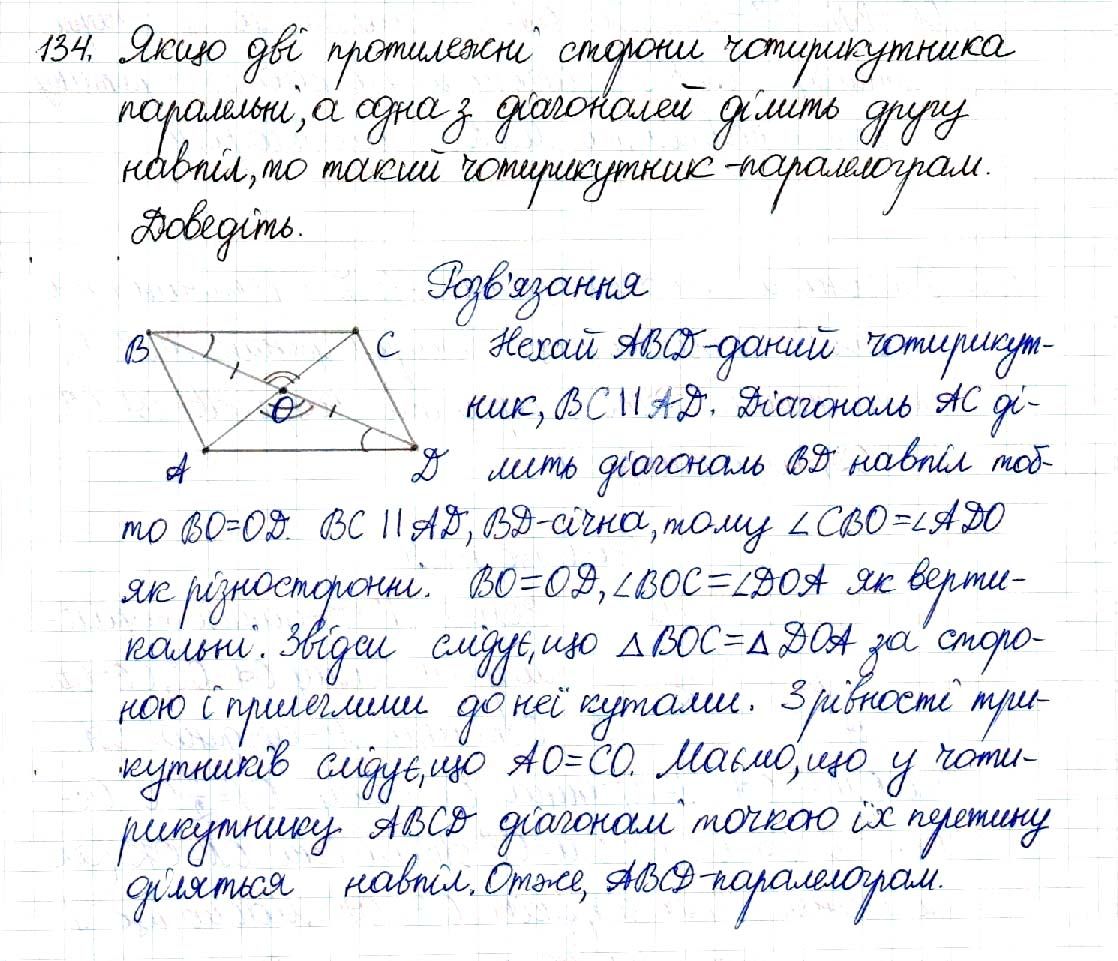 134. Якщо дві протилежні сторони чотирикутника
паралельні, а одна з діагоналей ділить другу
навпіл, то такий чотирикутник - паралелограм.
Доведіть.
Розв'язання
B
C
O
A
D
Нехай ABCD - даний чотирикут-
ник, BC || AD. Діагональ AC ді-
лить діагональ BD навпіл тоб-
то BO=OD. BC || AD, BD - січна, тому ∠CBO=∠ADO
як різносторонні. BO=OD, ∠BOC=∠DOA як верти-
кальні. Звідси слідує, що △BOC=△DOA за сторо-
ною і прилеглими до неї кутами. З рівності три-
кутників слідує, що AO=CO. Маємо, що у чоти-
рикутнику ABCD діагоналі точкою їх перетину
діляться навпіл. Отже, ABCD - паралелограм.